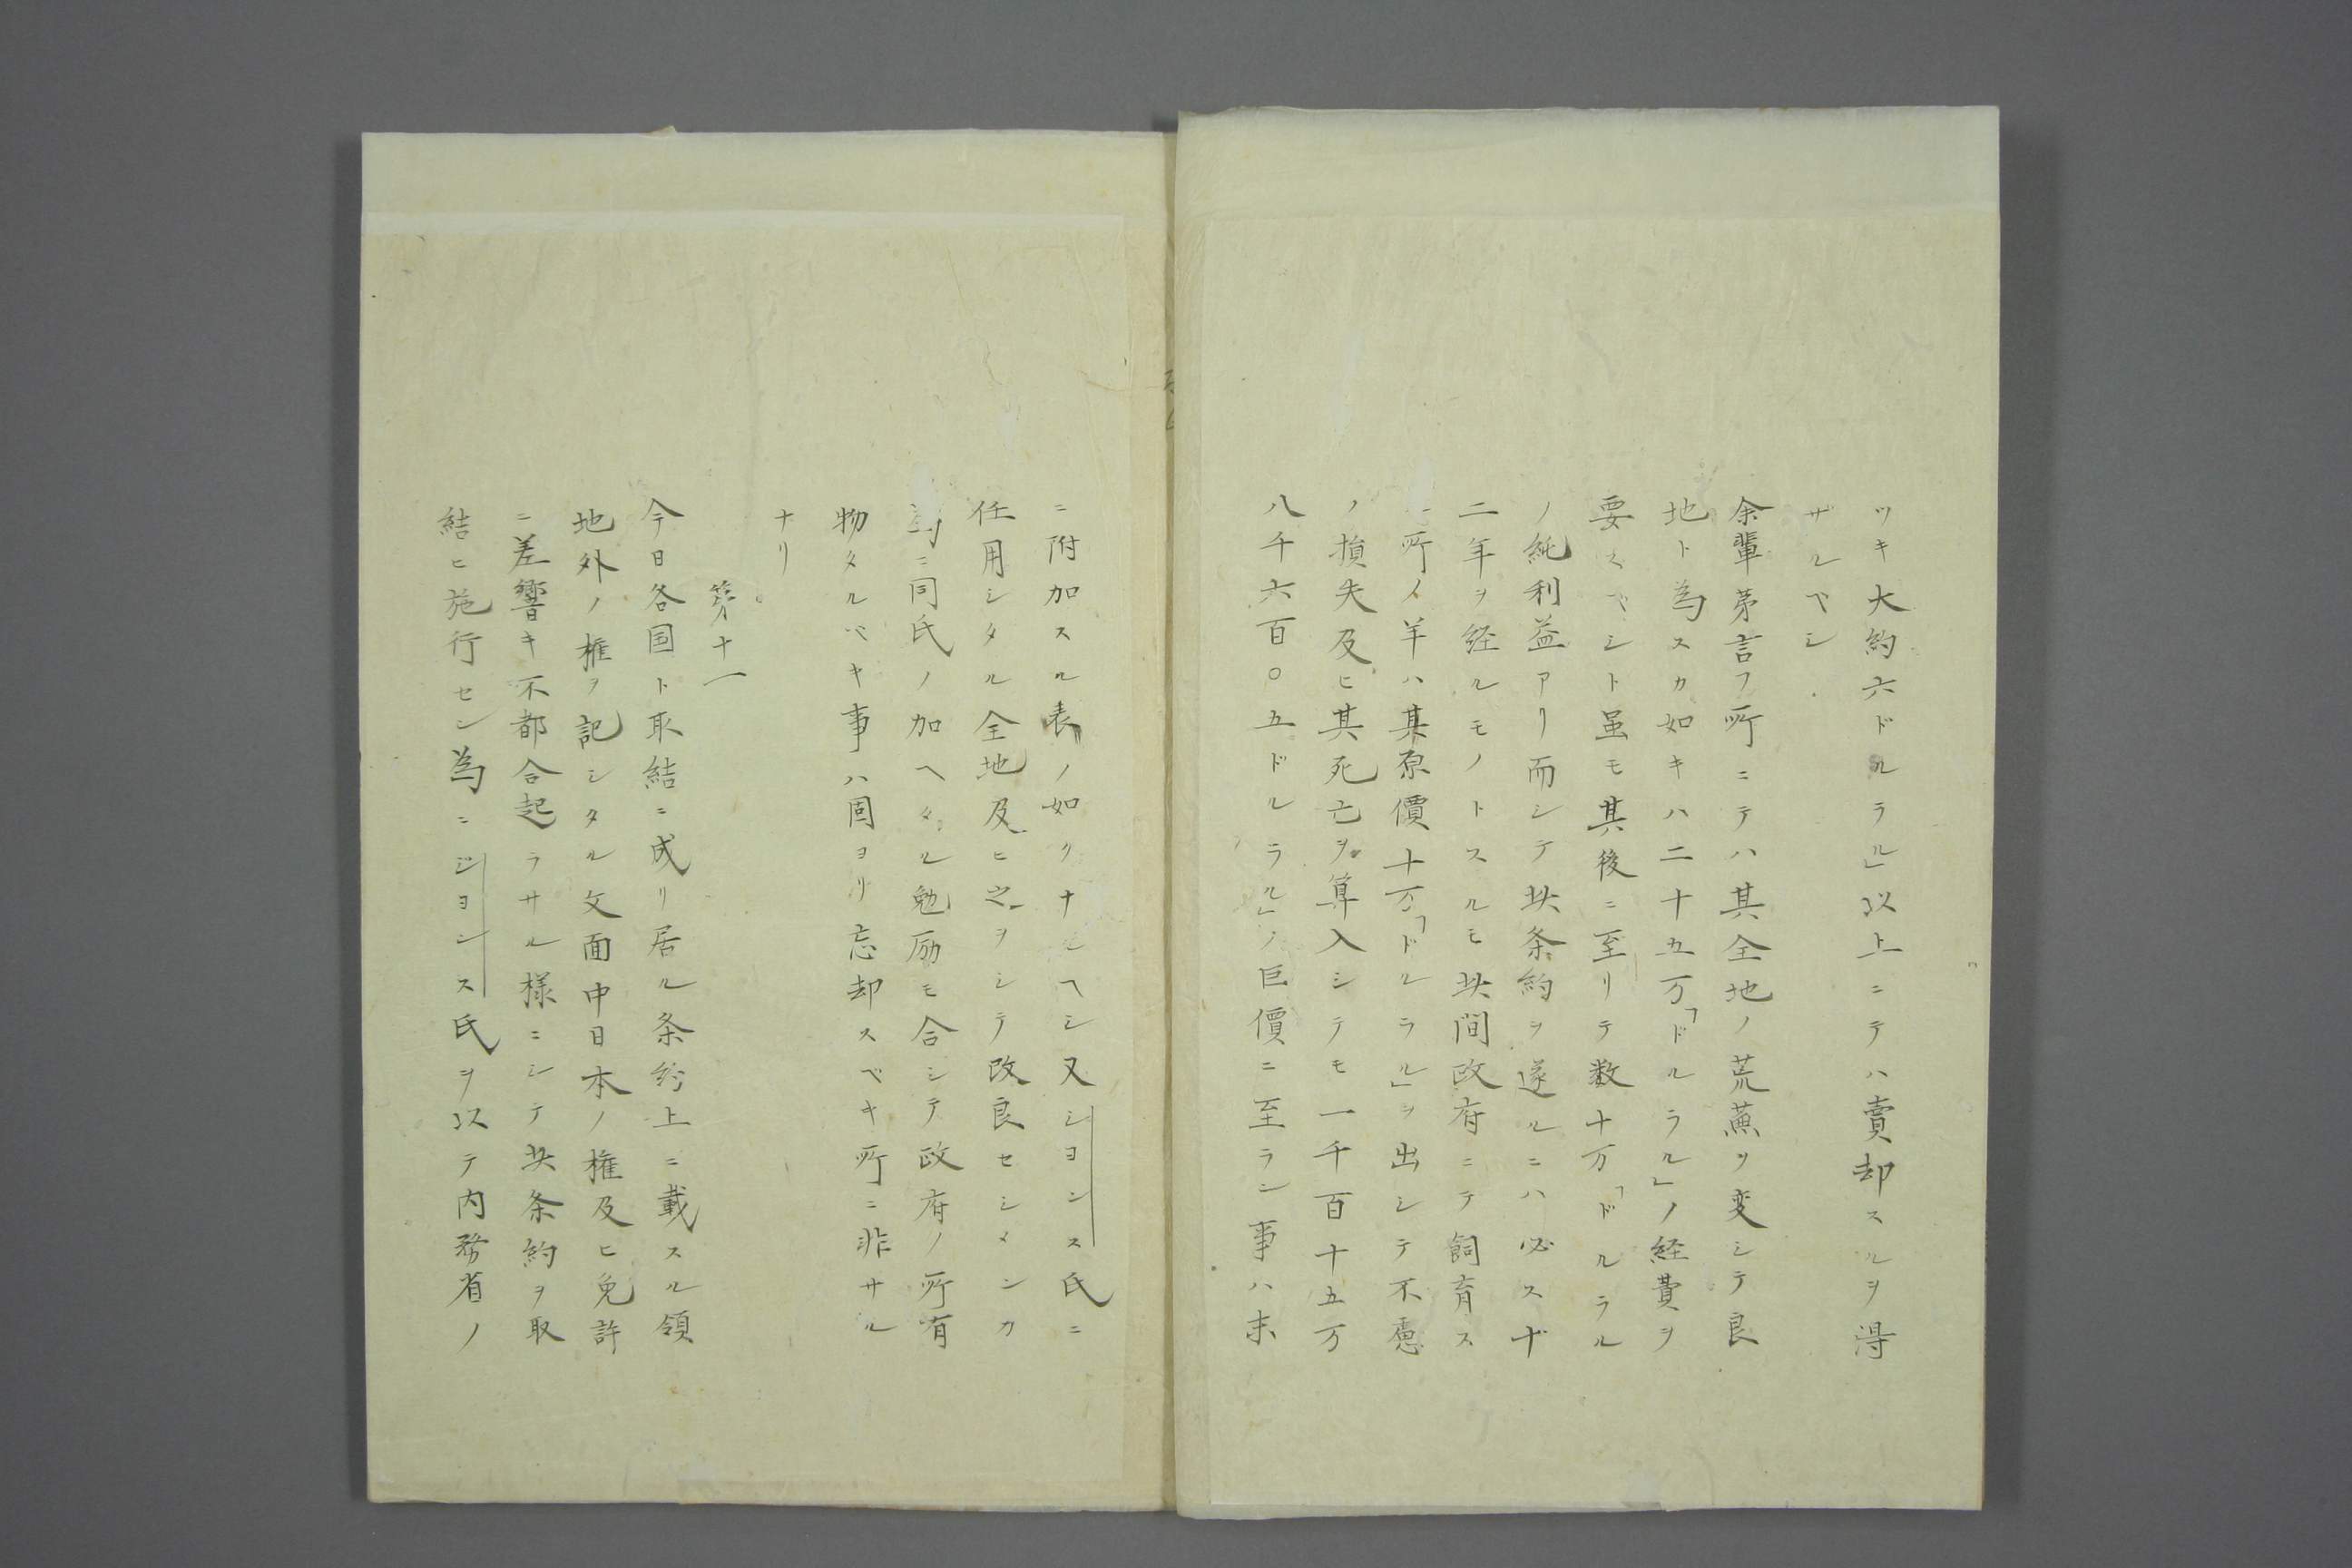 ツキ大約六ドルラル」以上ニテハ賣却スルヲ得
ザルベシ
余輩苐言フ所ニテハ其全地ノ荒蕪ヲ変シテ良
地ト為スカ如キハ二十五万「ドルラル」ノ経費ヲ
要スベシト虽モ其後ニ至リテ数十万「ドルラル
ノ純利益アリ而シテ此条約ヲ遂ルニハ必ス十
二年ヲ経ルモノトスルモ此間政府ニテ飼育ス
所ノ羊ハ其原價十万「ドルラル」ヲ出シテ不慮
ノ損失及ヒ其死亡ヲ算入シテモ一千百十五万
八千六百〇五ドルラル」ノ巨價ニ至ラン事ハ末
ニ附加スル表ノ如クナルヘシ又シヨンス氏ニ
任用シタル全地及ヒ之ヲシテ改良セシメンカ
為ニ同氏ノ加ヘタル勉励モ合シテ政府ノ所有
物タルベキ事ハ固ヨリ忘却スベキ所ニ非サル
ナリ
第十一
今日各国ト取結ニ成リ居ル条約上ニ載スル領
地外ノ権ヲ記シタル文面中日本ノ権及ヒ免許
ニ差響キ不都合起ラサル様ニシテ此条約ヲ取
結ヒ施行セン為ニジヨンス氏ヲ以テ内務省ノ